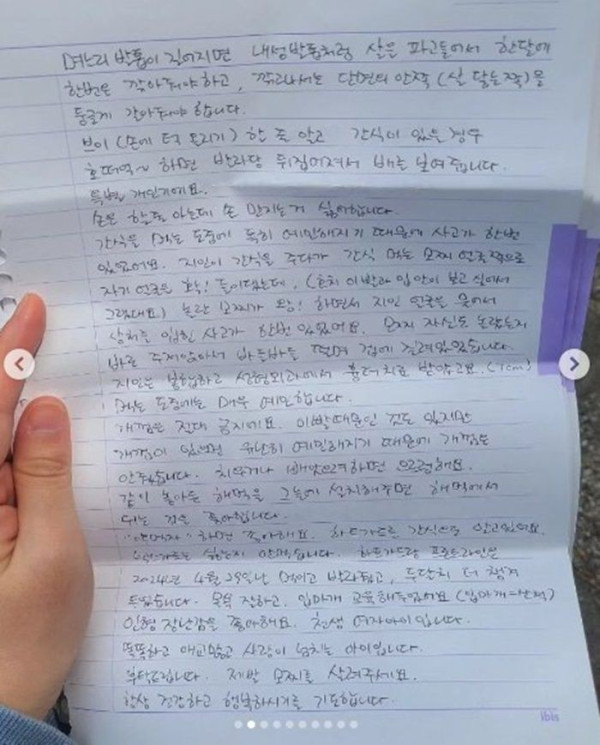 며느리 발톱이 길어지면 내성발톱처럼 살은 파고들어서 한달에
한번은 깎아줘야하고, 깎고나서는 단면의 안쪽 (살 닿는쪽)을
둥글게 갈아줘야 합니다.
브이 (손에 턱 올리기) 할 줄 알고 간식이 있을 경우
호떡먹~ 하면 발라당 뒤집어져서 배는 보여줍니다.
특별 개인기에요.
손은 할 줄 아는데 손 만지는거 싫어합니다.
간식을 먹는 도중에 특히 예민해지기 때문에 사고가 한번
있었어요. 지인이 간식을 주다가 간식 먹는 모찌 얼굴쪽으로
자기 얼굴은 확! 들이댔는데, (혼치 이빨과 입 안이 보고 싶어서
그랬대요) 놀란 모찌가 왕! 하면서 지인 얼굴을 물어서
상처를 입힌 사고가 한번 있었어요. 모찌 자신도 놀랐는지
바로 주저앉아서 바들바들 떨며 겁에 질려있었습니다.
지인은 봉합하고 성형외과에서 흉터치료 받았고요. (1cm)
먹는 도중에는 매우 예민합니다.
개껌은 절대 금지에요. 이빨때문인 것도 있지만
개껌이 있으면 유난히 예민해지기 때문에 개껌은
안주었습니다. 치우거나 뺏으려하면 으르렁해요.
같이 놓아둔 해먹을 그늘에 설치해주면 해먹에서
쉬는 것을 좋아합니다.
하면 좋아해요. 하트가드를 간식으로 알고있어요.
안먹습니다. 하트가드랑 프론트라인은
2024년 4월 29일날 먹이고 발라줬고, 두달치 더 챙겨
두었습니다. 목욕 잘하고, 입마개 교육해두었어요 (입마개=산책)
인형 장난감을 좋아해요. 천생 여자아이입니다.
똑똑하고 애교많고 사랑이 넘치는 아이입니다.
부탁드립니다. 제발 모찌를 살려주세요.
항상 건강하고 행복하시기를 기도합니다.
ibis